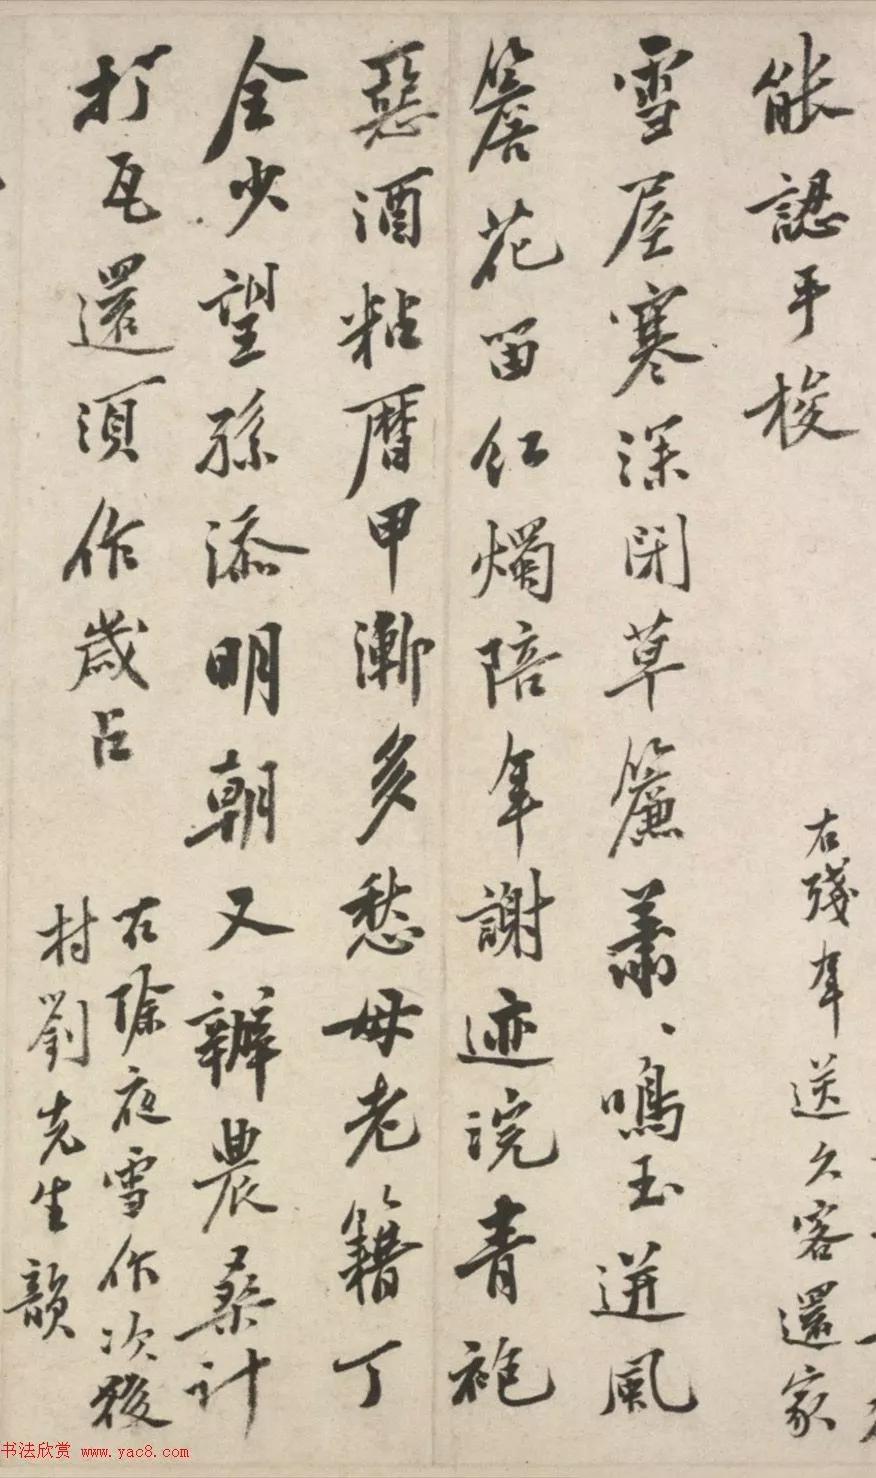 能認手梭
右殘年送久客還家
雪屋寒深閉草簾蕭〻鳴玉迸風
簷花留紅燭陪年謝迹浣青袍
惡酒粘曆甲漸多愁母老籍丁
全少望孫添明朝又辦農桑計
打瓦還須作歲占
右除夜雪作次後
村劉先生韻
书法欣赏 www.yac8.com